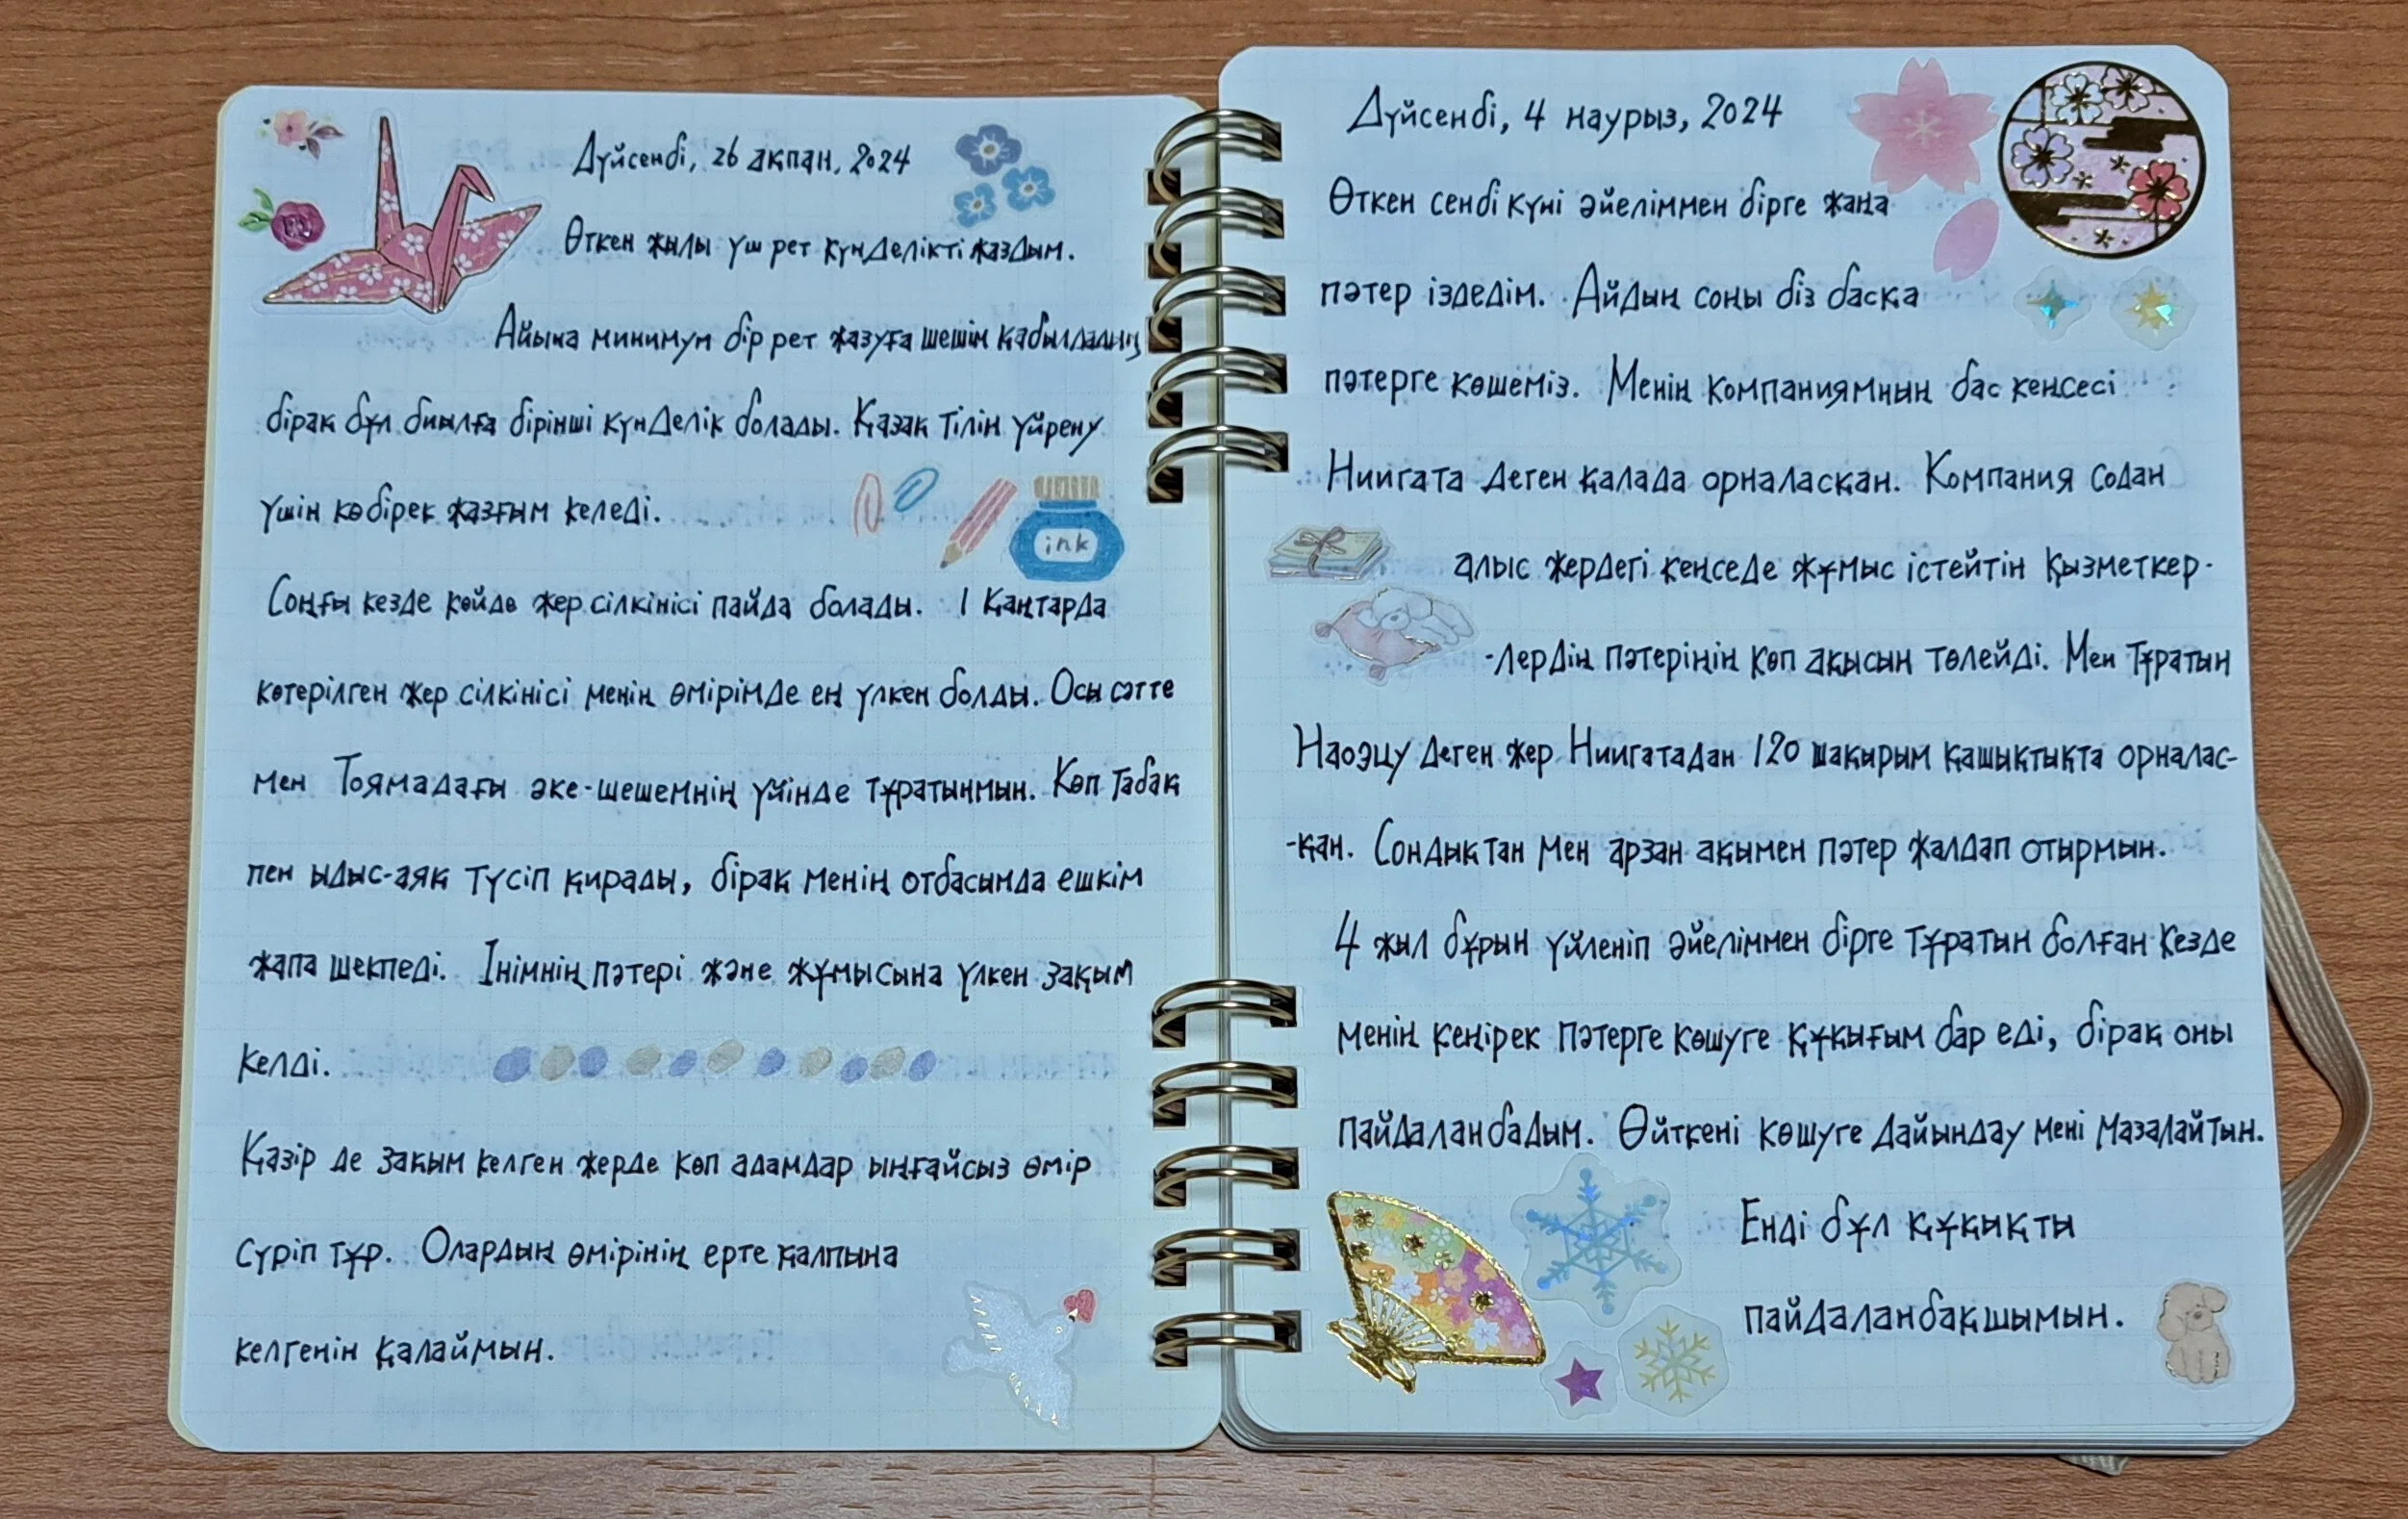 Дүйсенбі, 26 ақпан, 2024
Өткен жылы үш рет күнделікті жаздым.
Айына минимум бір рет жазуға шешім қабылдадың
бірақ бұл биылға бірінші күнделік болады. Қазақ тілін үйрену
үшін көбірек жазғым келеді.
ink
Соңғы кезде көйде жер сілкінісі пайда болады. 1 қаңтарда
көтерілген жер сілкінісі менің өмірімде ең үлкен болды. Осы сәтте
мен Тоямадағы әке-шешемнің үйінде тұратынмын. Көп табақ
пен ыдыс-аяқ түсіп қирады, бірақ менің отбасымда ешкім
жапа шекпеді. Інімнің пәтері және жұмысына үлкен зақым
келді.
Қазір де зақым келген жерде көп адамдар ыңғайсыз өмір
сүріп тұр. Олардың өмірінің ерте қалпына
келгенін қалаймын.
Дүйсенбі, 4 наурыз, 2024
Өткен сенбі күні әйеліммен бірге жаңа
пәтер іздедім. Айдың соңы біз басқа
пәтерге көшеміз. Менің компаниямның бас кеңсесі
Ниигата деген қалада орналасқан. Компания содан
алыс жердегі кеңседе жұмыс істейтін қызметкер-
-лердің пәтерінің көп ақысын төлейді. Мен тұратын
Наоэцу деген жер Ниигатадан 120 шақырым қашықтықта орналас-
-қан. Сондықтан мен арзан ақымен пәтер жалдап отырмын.
4 жыл бұрын үйленіп әйеліммен бірге тұратын болған кезде
менің кеңірек пәтерге көшуге құқығым бар еді, бірақ оны
пайдаланбадым. Өйткені көшуге дайындау мені мазалайтын.
Енді бұл құқықты
пайдаланбақшымын.